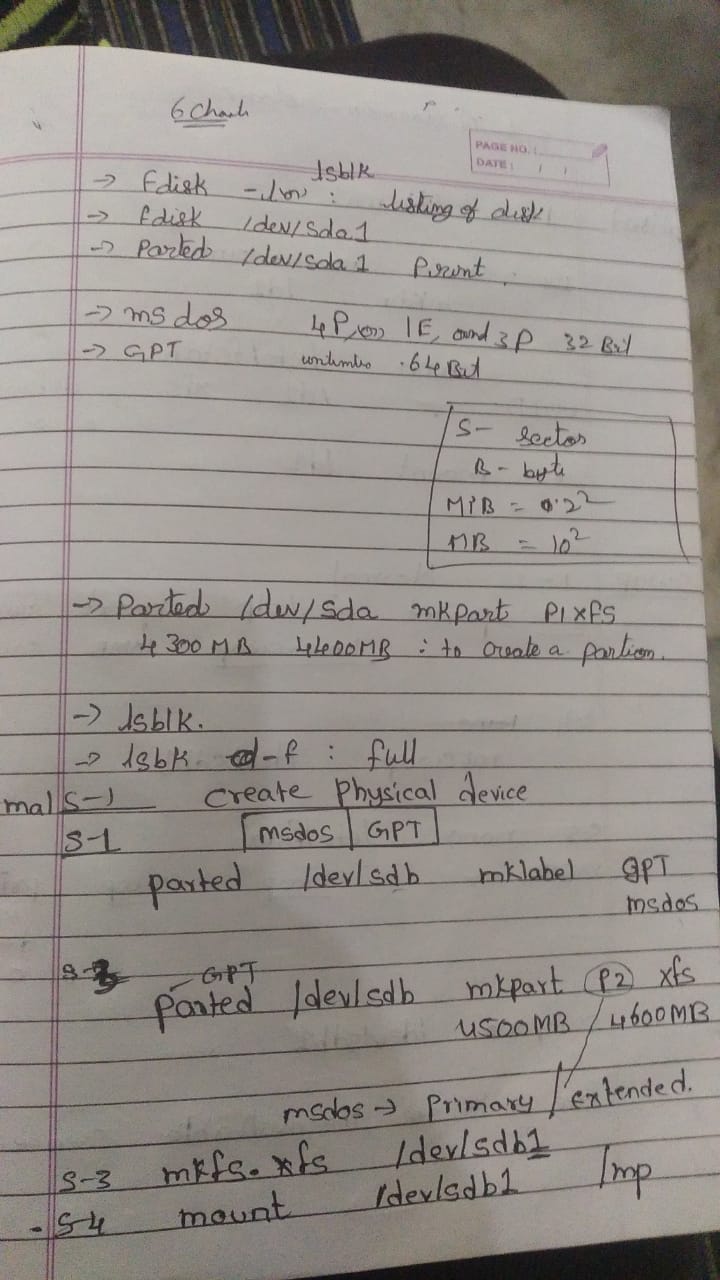 6 Chanh
PAGE NO. :
DATE : / /
lsblk
→ Fdisk -l : listing of disk
→ fdisk /dev/sda1
→ Parted /dev/sda1 Print
→ msdos 4P, 1E, and 3P 32 Bit
→ GPT .64Bit
S- sector
B - byte
MiB = 2²
MB = 10²
→ Parted /dev/sda mkpart P1 xfs
4300MB 4400MB : to create a partion.
→ lsblk.
→ lsbk -f : full
mal S-1 Create Physical device
S-1 msdos GPT
parted /dev/sdb mklabel GPT
msdos
GPT
parted /dev/sdb mkpart P2 xfs
4500MB / 4600MB
msdos → Primary / extended.
S-3 mkfs.xfs /dev/sdb1
S-4 mount /dev/sdb1 /mp